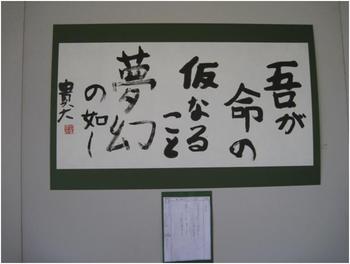 吾が
命の
仮なる
こと
夢幻
の如し
貴大